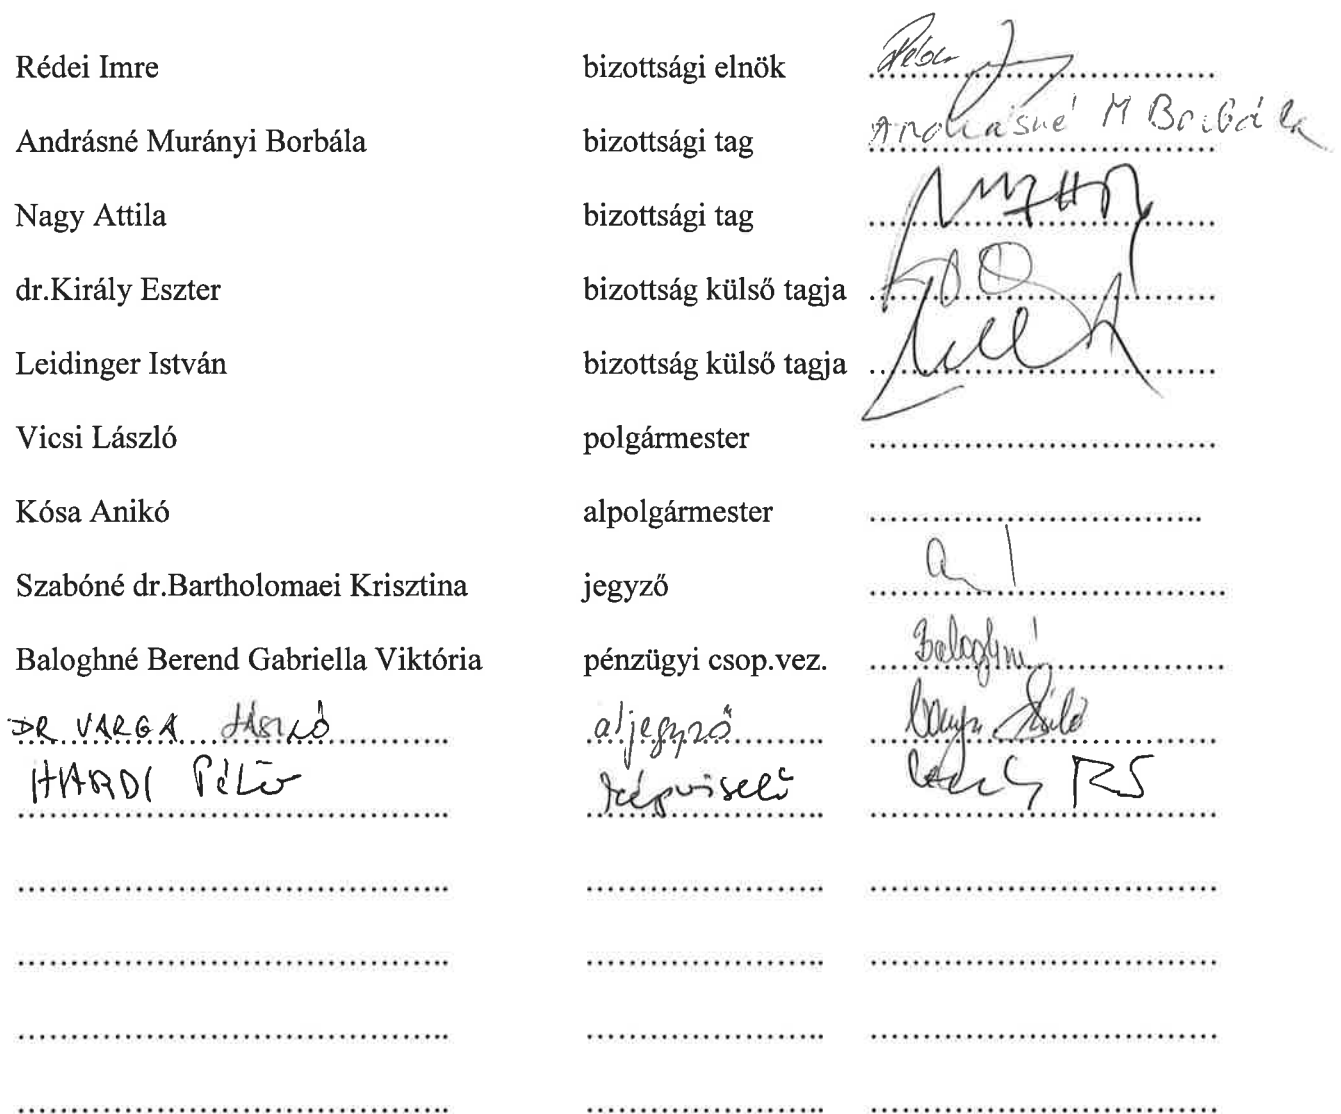 Rédei Imre bizottsági elnök
Andrásné Murányi Borbála bizottsági tag Andrásné M Borbála
Nagy Attila bizottsági tag
dr.Király Eszter bizottság külső tagja
Leidinger István bizottság külső tagja
Vicsi László polgármester
Kósa Anikó alpolgármester
Szabóné dr.Bartholomaei Krisztina jegyző
Baloghné Berend Gabriella Viktória pénzügyi csop.vez. Baloghné
DR VARGA LÁSZLÓ aljegyző
HARDI Péter képviselő